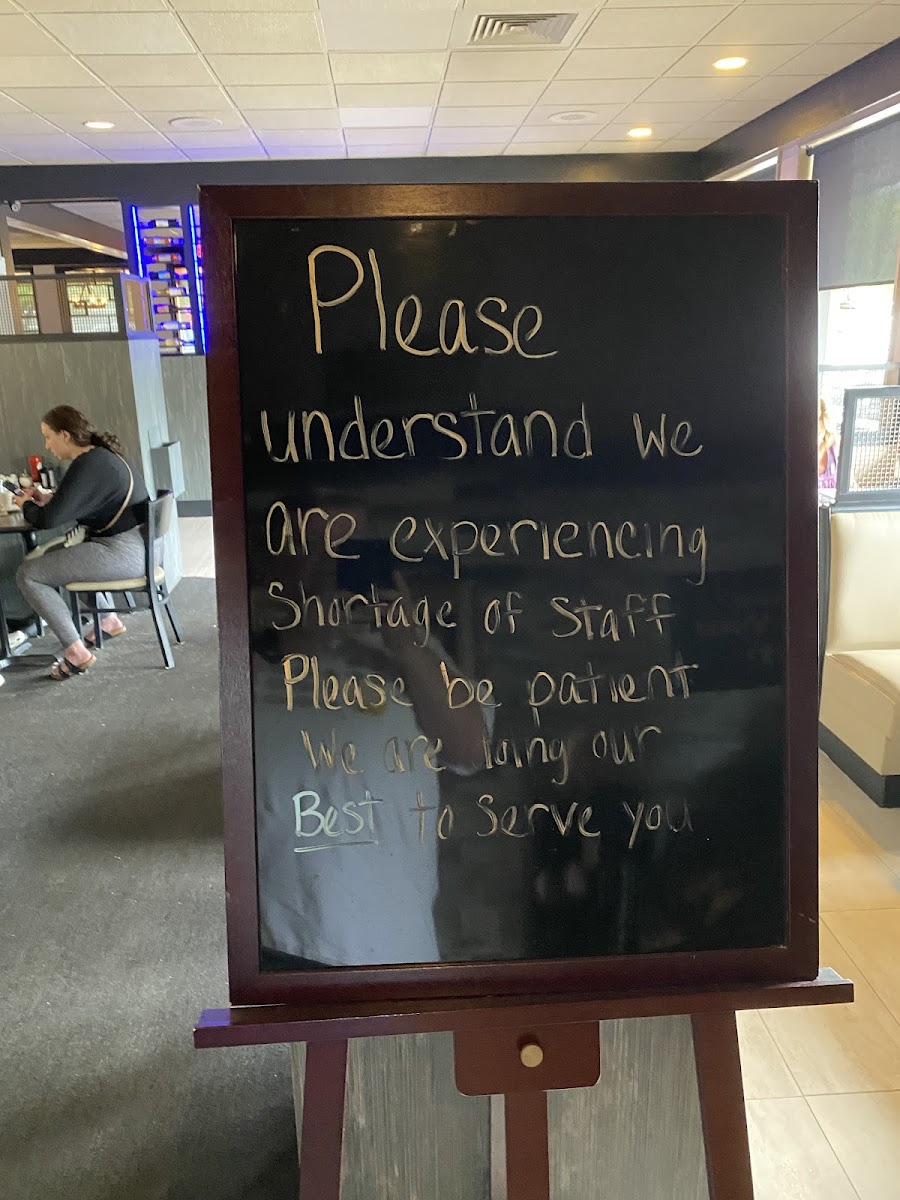 Please
understand we
are experiencing
Shortage of Staff
Please be patient
We are doing our
Best to serve you